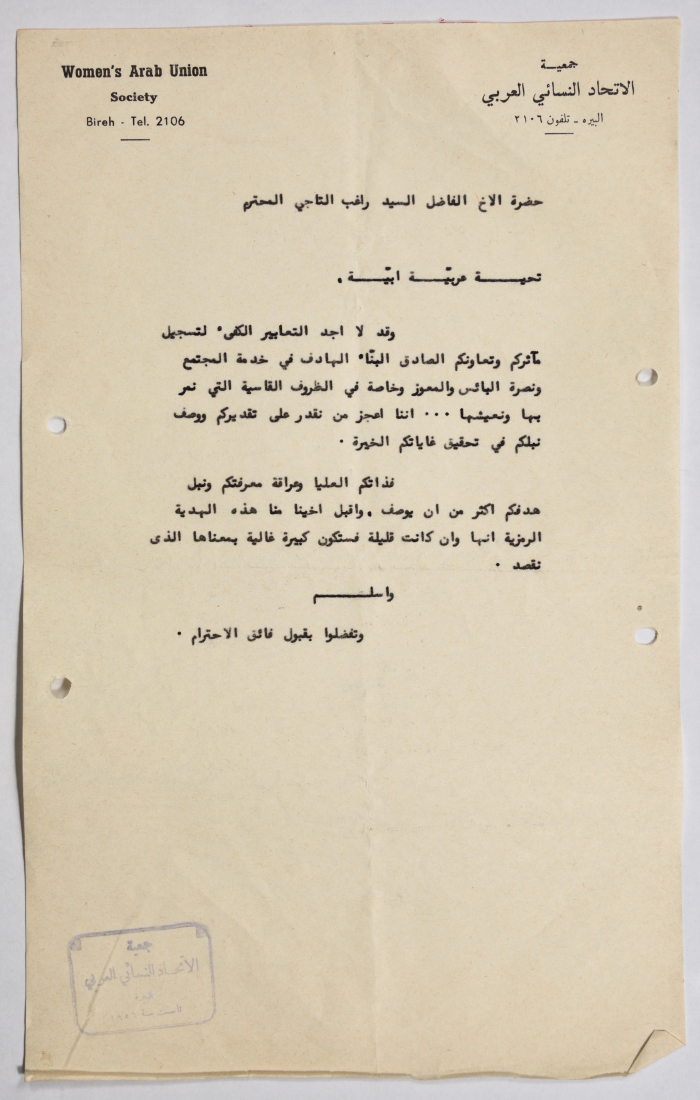 Women's Arab Union
Society
Bireh - Tel. 2106
جمعيـة
الاتحاد النسائي العربي
البيره ـ تلفون ٢١٠٦
حضرة الاخ الفاضل السيد راغب التاجي المحترم
تحيـــــة عربيّـــة ابيّـــة .
وقد لا اجد التعابير الكفىء لتسجيل
مآثركم وتعاونكم الصادق البنّاء الهادف في خدمة المجتمع
ونصرة البائس والمعوز وخاصة في الظروف القاسية التي نمر
بها ونعيشها ... اننا اعجز من نقدر على تقديركم ووصف
نبلكم في تحقيق غاياتكم الخيرة .
فذاتكم العليا وعراقة معرفتكم ونبل
هدفكم اكثر من ان يوصف . واقبل اخينا منا هذه الهدية
الرمزية انها وان كانت قليلة فستكون كبيرة غالية بمعناها الذى
نقصد .
واسلـــــــم
وتفضلوا بقبول فائق الاحترام .
جمعية
الاتحاد النسائي العربي
البيرة